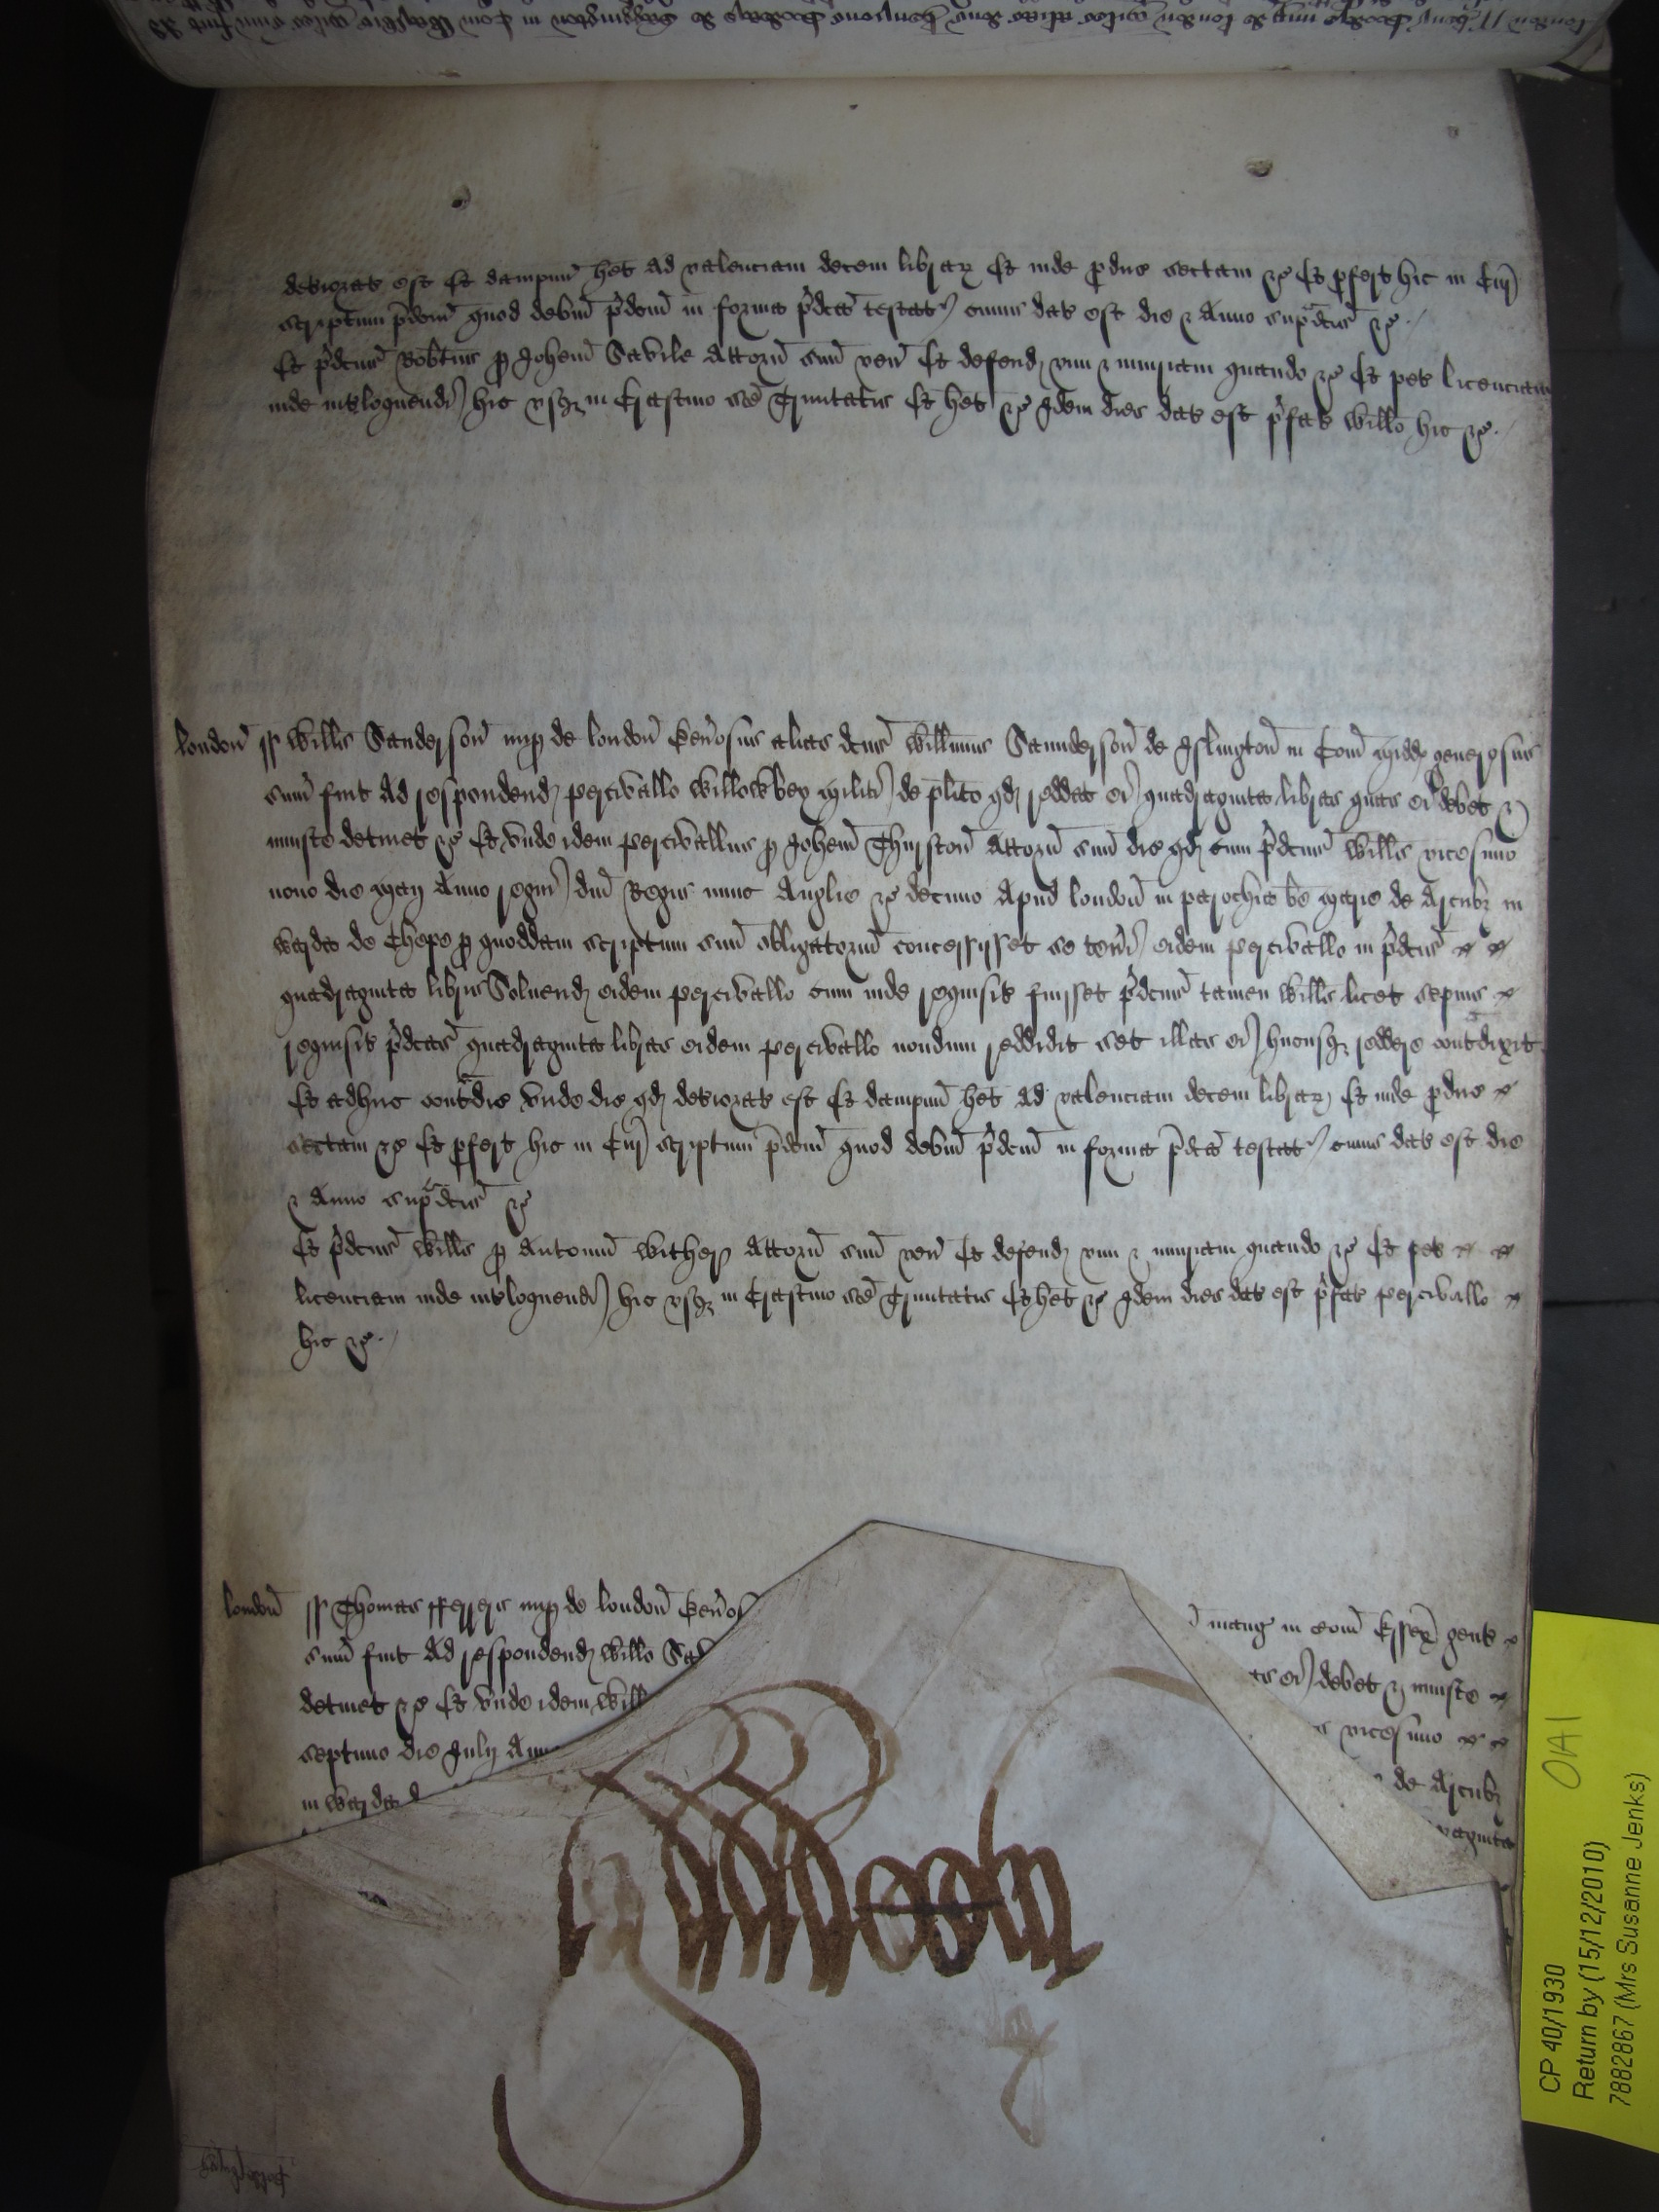 deteriorat est Et dampnu het ad valenciam decem librar Et inde produc sectam &c Et profert hic in Cur
scriptum pdcm quod debm pdcm in forma pdca testat cuius dat est die & Anno supradcis &c
Et pdcus Robtus p Johem Savile Attorn suu ven Et defend vim & iniuriam quando &c Et pet licenciam
inde interloquendi hic usq in Crastino sce Trinitatis Et het &c Idem dies dat est pfat Willo hic &c
London ss Willus Sanderson nup de London Generosus alias dcus Willmus Saunderson de Islington in Com Midd generosus
sum fuit ad respondend percivallo Willowbey militi de plito qd reddat ei quadraginta libras quas ei debet &
iniuste detinet &c Et unde idem percivallus p Johem Thurston Attorn suu dic qd cum pdcus Willus vicesimo
nono die Maij Anno regni dni Regis nunc Anglie &c decimo Apud London in parochia be Marie de Arcubz in
warda de Chepe p quoddam scriptum suu obligatoriu concessisset se teneri eidem percivallo in pdcis
quadraginta libris Solvend eidem percivallo cum inde requisit fuisset pdcus tamen Willus licet sepius
requisit pdcas quadraginta libras eidem percivallo nondum reddidit set illas ei hucusq reddere contradixit
Et adhuc contradic Unde dic qd deteriorat est Et dampnu het ad valenciam decem librar Et inde produc
sectam &c Et profert hic in Cur scriptum pdcm quod debm pdcm in forma pdca testat cuius dat est die
& Anno supradcis &c
Et pdcus Willus p Antoniu Wither Attorn suu ven Et defend vim & iniuriam quando &c Et pet
licenciam inde interloquend hic usq in Crastino sce Trinitatis Et het &c Idem dies dat est pfat percivallo
hic &c
London ss Thomas nup de London Genos in com Essex gent
sum fuit ad respondend Willo ei debet & iniuste
detinet &c Et unde idem Will vicesimo
septimo die Julij de Arcubz
in warda
CP 40/1930 OA1
Return by (15/12/2010)
7882867 (Mrs Susanne Jenks)